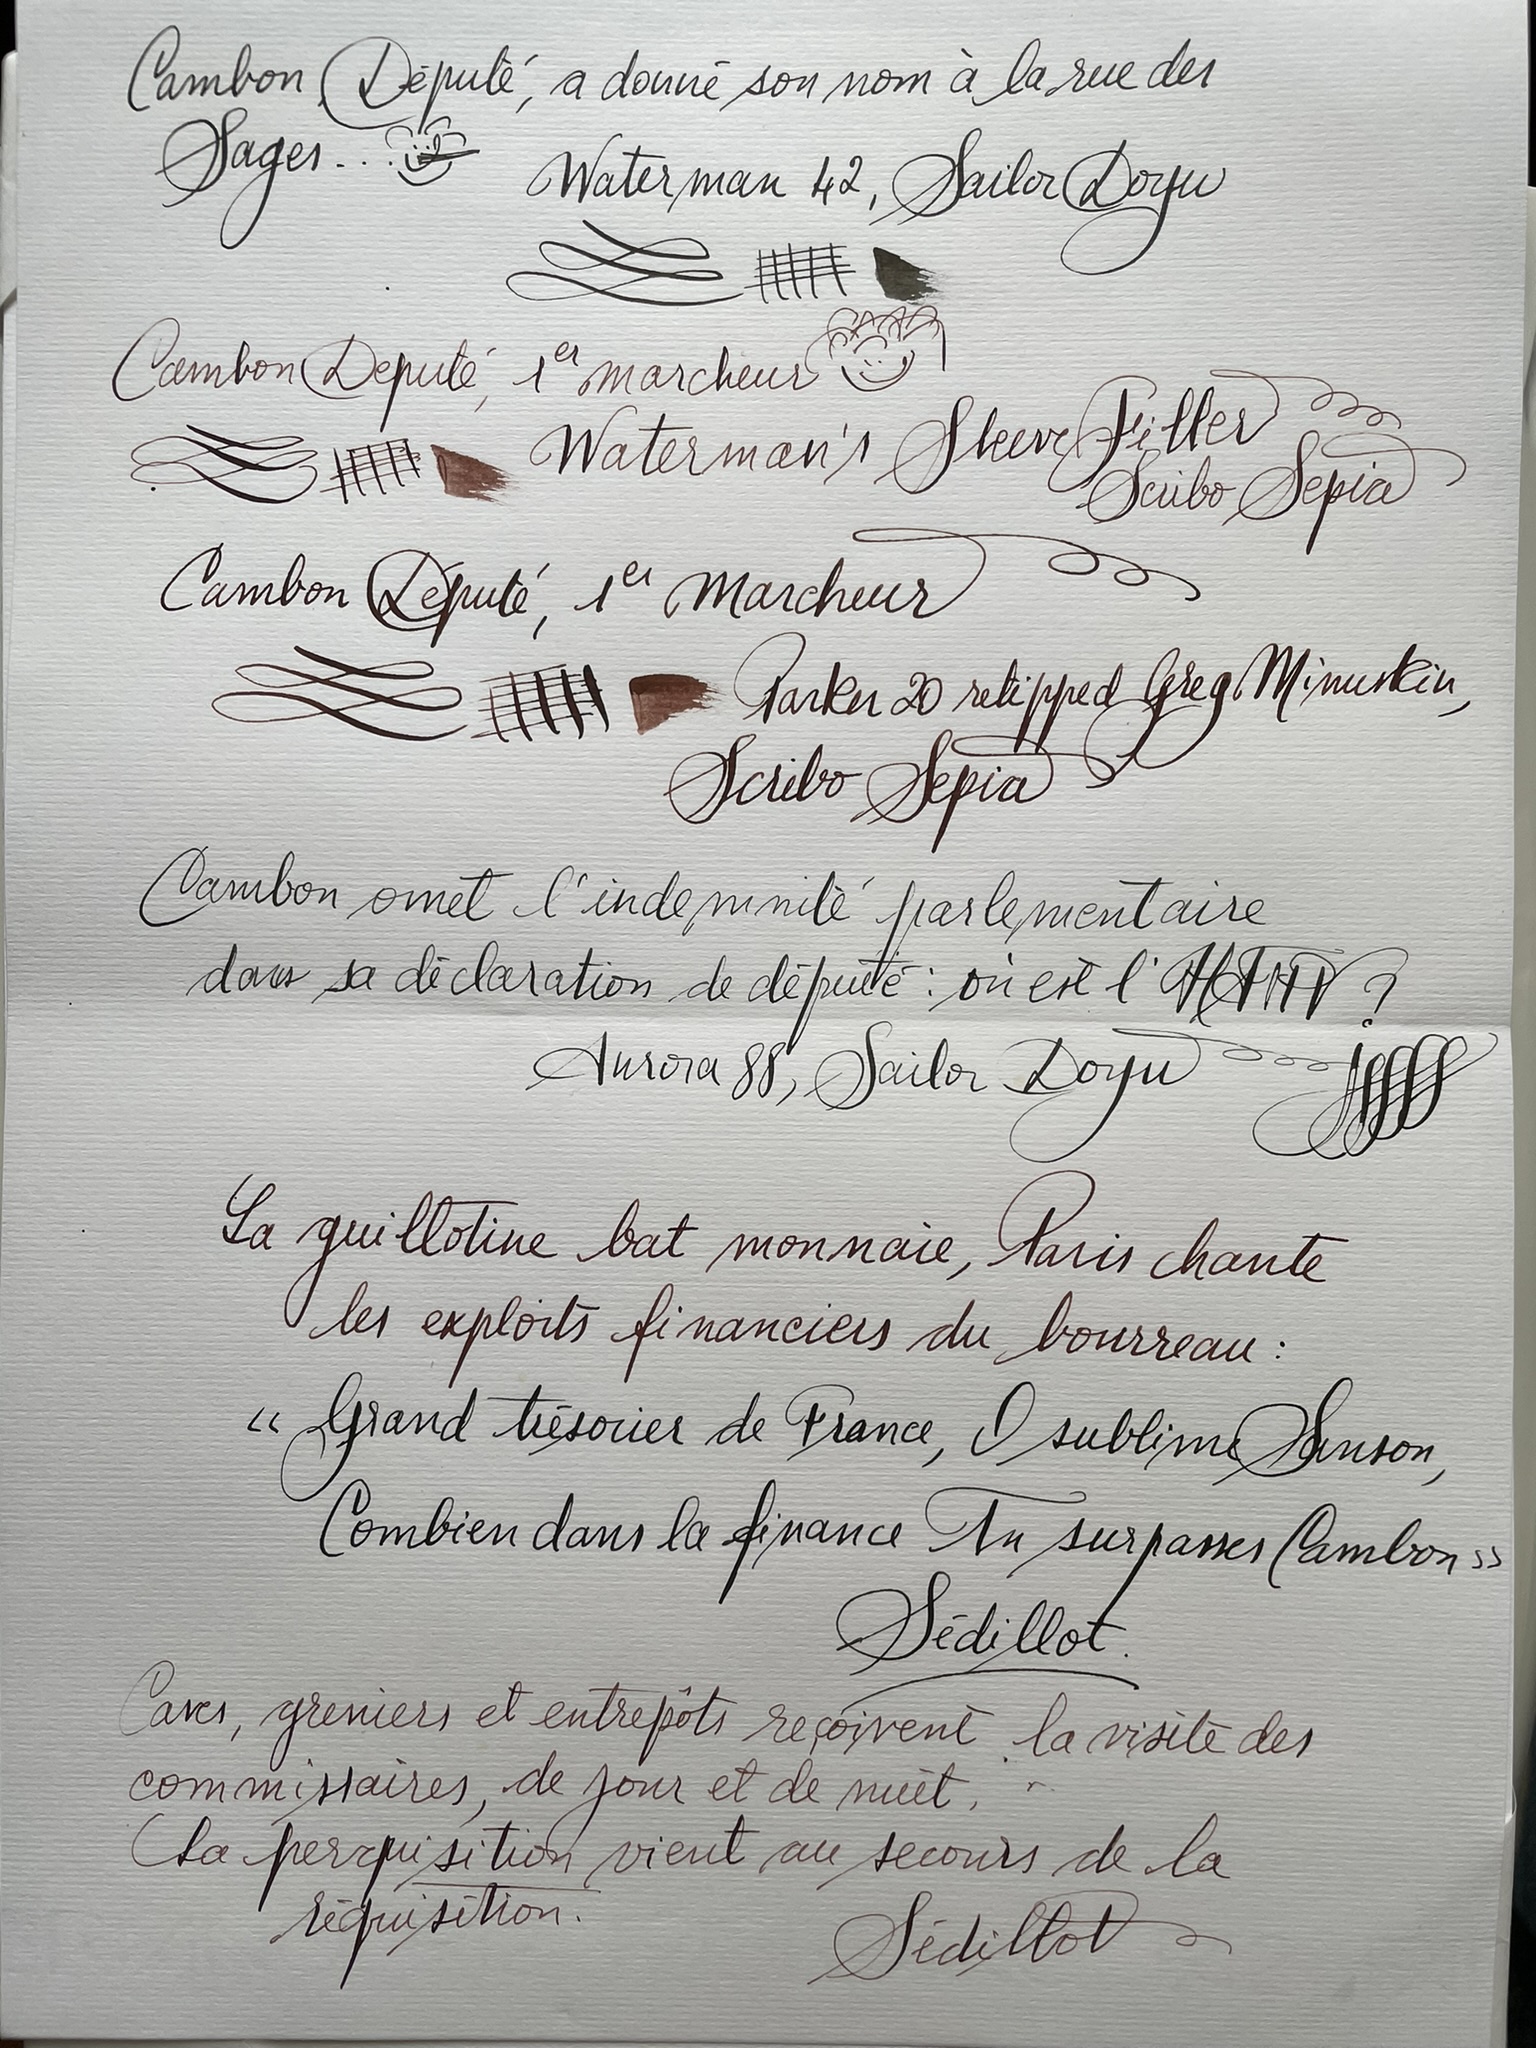 Cambon Député, a donné son nom à la rue des
Sages...
Waterman 42, Sailor Doyu
Cambon Deputé, 1er marcheur
Waterman's Sleeve Filler
Scribo Sepia
Cambon Député, 1er Marcheur
Parker 20 retipped Greg Minuskin,
Scribo Sepia
Cambon omet l'indemnité parlementaire
dans sa déclaration de député : où est l'HATVP ?
Aurora 88, Sailor Doyu
La guillotine bat monnaie, Paris chante
les exploits financiers du bourreau :
« Grand trésorier de France, O sublime Sanson,
Combien dans la finance Tu surpasses Cambon »
Sédillot.
Caves, greniers et entrepôts reçoivent la visite des
commissaires, de jour et de nuit.
La perquisition vient au secours de la
réquisition.
Sédillot